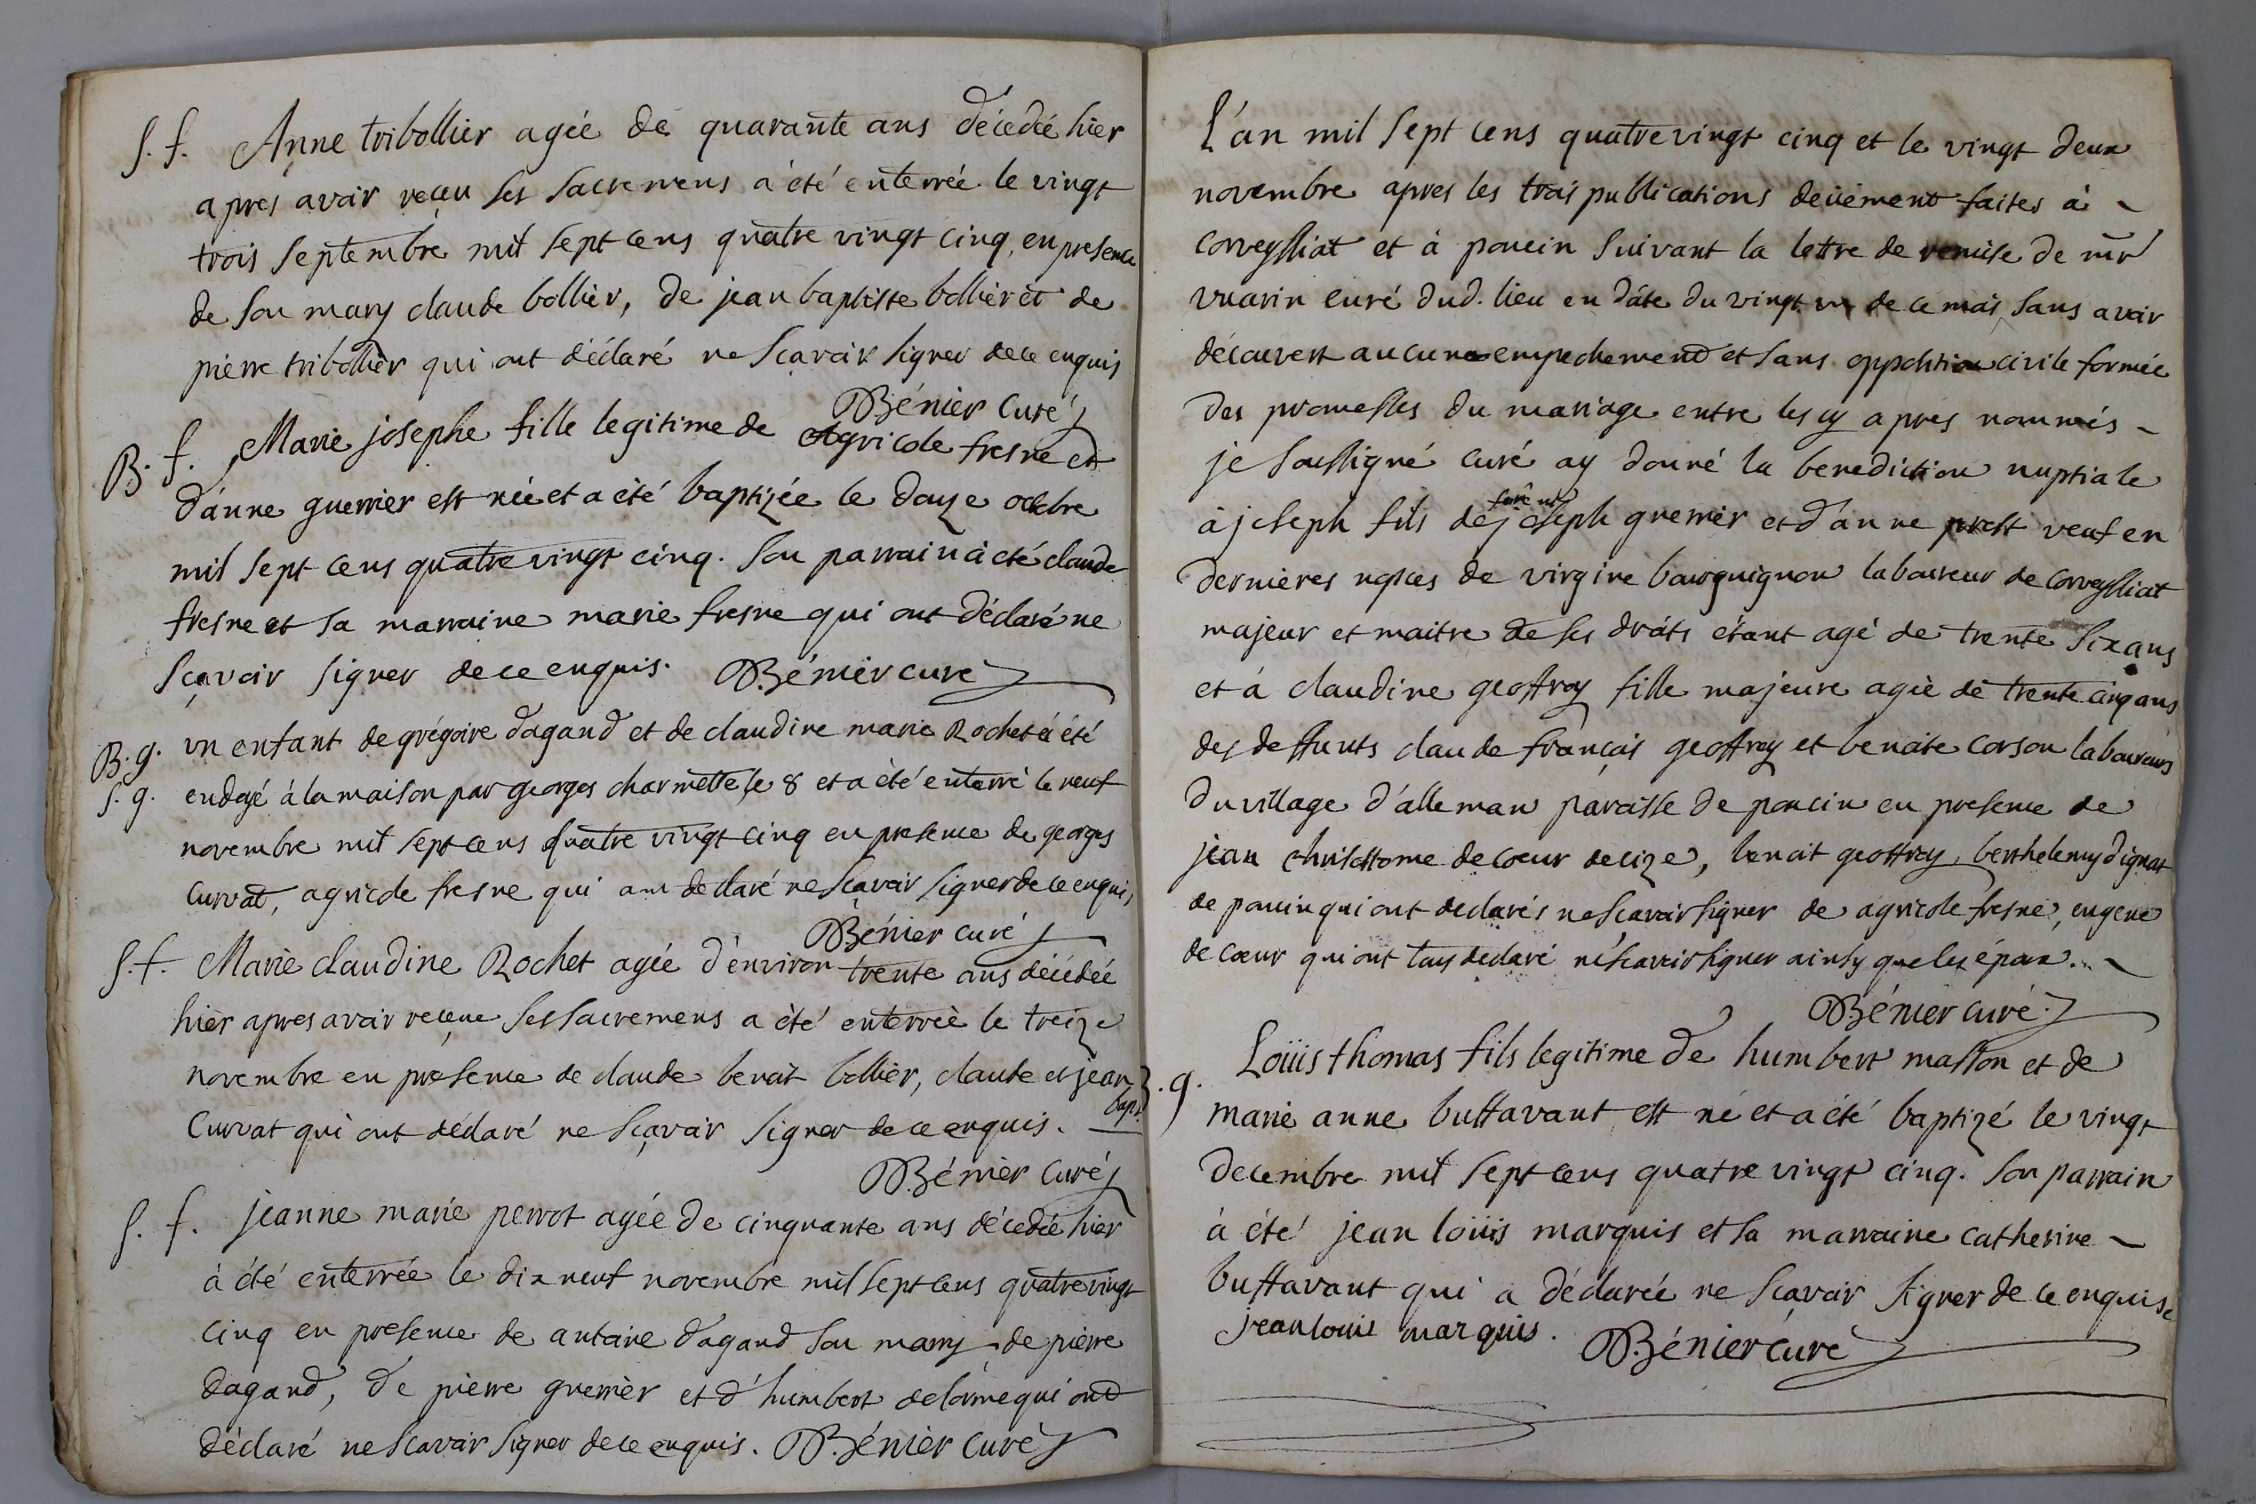 S. f. Anne tribollier agée de quarante ans décedée hier
apres avoir reçeu ses sacremens a été enterrée le vingt
trois septembre mil sept cens quatre vingt cinq, en presence
de son mary claude bollier, de jean baptiste bollier et de
pierre tribollier qui ont déclaré ne sçavoir signer de ce enquis
Bénier curé
B. f. Marie josephe fille legitime de Agricole fresne et
d'anne guerrier est née et a été baptizée le douze octobre
mil sept cens quatre vingt cinq. son parrain à été claude
fresne et sa marraine marie fresne qui ont déclaré ne
sçavoir signer de ce enquis. Bénier curé
B. g. un enfant de grégoire dagand et de claudine marie Rochet à été
S. g. endoyé à la maison par georges charmette, le 8 et a été enterré le neuf
novembre mil sept cens quatre vingt cinq en presence de georges
curvat, agricole fresne qui ont declaré ne sçavoir signer de ce enquis
Bénier curé
S. f. Marie claudine Rochet agée d'environ trente ans décédée
hier apres avoir reçeue ses sacremens a été enterrée le treize
novembre en presence de claude benoit bollier, claude et jean
bapt.
Curvat qui ont déclaré ne sçavoir signer de ce enquis.
Bénier curé
S. f. jeanne marie perrot agée de cinquante ans décedée hier
à été enterrée le dix neuf novembre mil sept cens quatre vingt
cinq en presence de antoine dagand son mary, de pierre
dagand, de pierre guerrier et d'humbert delorme qui ont
déclaré ne sçavoir signer de ce enquis. Bénier curé
L'an mil sept cens quatre vingt cinq et le vingt deux
novembre apres les trois publications deüement faites à
corveyssiat et à poncin suivant la lettre de remise de mr
vuarin curé dud. lieu en date du vingt un de ce mois, sans avoir
découvert aucun empechement et sans opposition civile formée
des promesses du mariage entre les cy apres nommés
je soussigné curé ay donné la benediction nuptiale
à joseph fils de joseph guerrier et d'anne prost veuf en
dernières nopces de virgine bourguignon laboureur de corveyssiat
majeur et maitre de ses droits étant agé de trente six ans
et à claudine geoffroy fille majeure agée de trente cinq ans
des deffunts claude françois geoffroy et benoite corson laboureurs
du village d'alleman paroisse de poncin en presence de
jean chrisostome de coeur de cize, benoit geoffroy, berthelemy dignat
de poncin qui ont declarés ne sçavoir signer de agricole fresne, eugene
de coeur qui ont tous declaré ne sçavoir signer ainsy que les époux.
Bénier curé.
B. g. Loüis thomas fils legitime de humbert masson et de
marie anne buffavant est né et a été baptizé le vingt
decembre mil sept cens quatre vingt cinq. son parrain
à été jean loüis marquis et sa marraine catherine
buffavant qui a déclarée ne sçavoir signer de ce enquise
jean louis marquis. Bénier curé